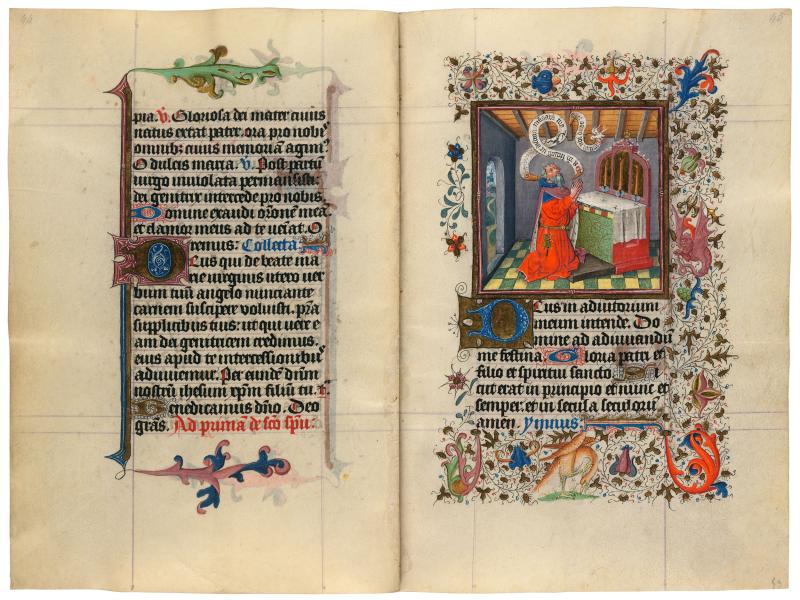 44
pia. V. Gloriosa dei mater cuius
natus extat pater. ora pro nobꝰ
omnibꝫ cuius memoriā agimꝰ
O dulcis maria. V. Post partū
virgo inviolata permansisti:
dei genitrix intercede pro nobis
Domine exaudi oronē meā
et clamor meus ad te veniat. O
remus: Collecta
Deus qui de beate ma
rie virginis utero ver
bum tuū angelo nunciante
carnem suscipere voluisti. pra
supplicibus tuis: ut qui vere e
am dei genitricem credimus.
eius apud te intercessionibꝰ
adiuvemur. Per eundē dnm
nostrū ihesum xpm filiū tu.
Benedicamus dno. Deo
gras. Ad primā de sco spu:
45
Deus in adiutorium
meum intende. Do
mine ad adiuvandū
me festina Gloria patri et
filio et spiritui sancto S
icut erat in principio et nunc et
semper. et in secula seculorū
amen. Ymnus: